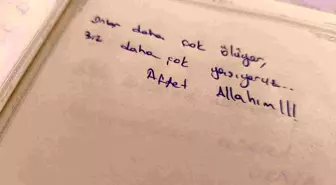 onlar daha çok ölüyor,
biz daha çok yaşıyoruz...
Affet Allahım!!!